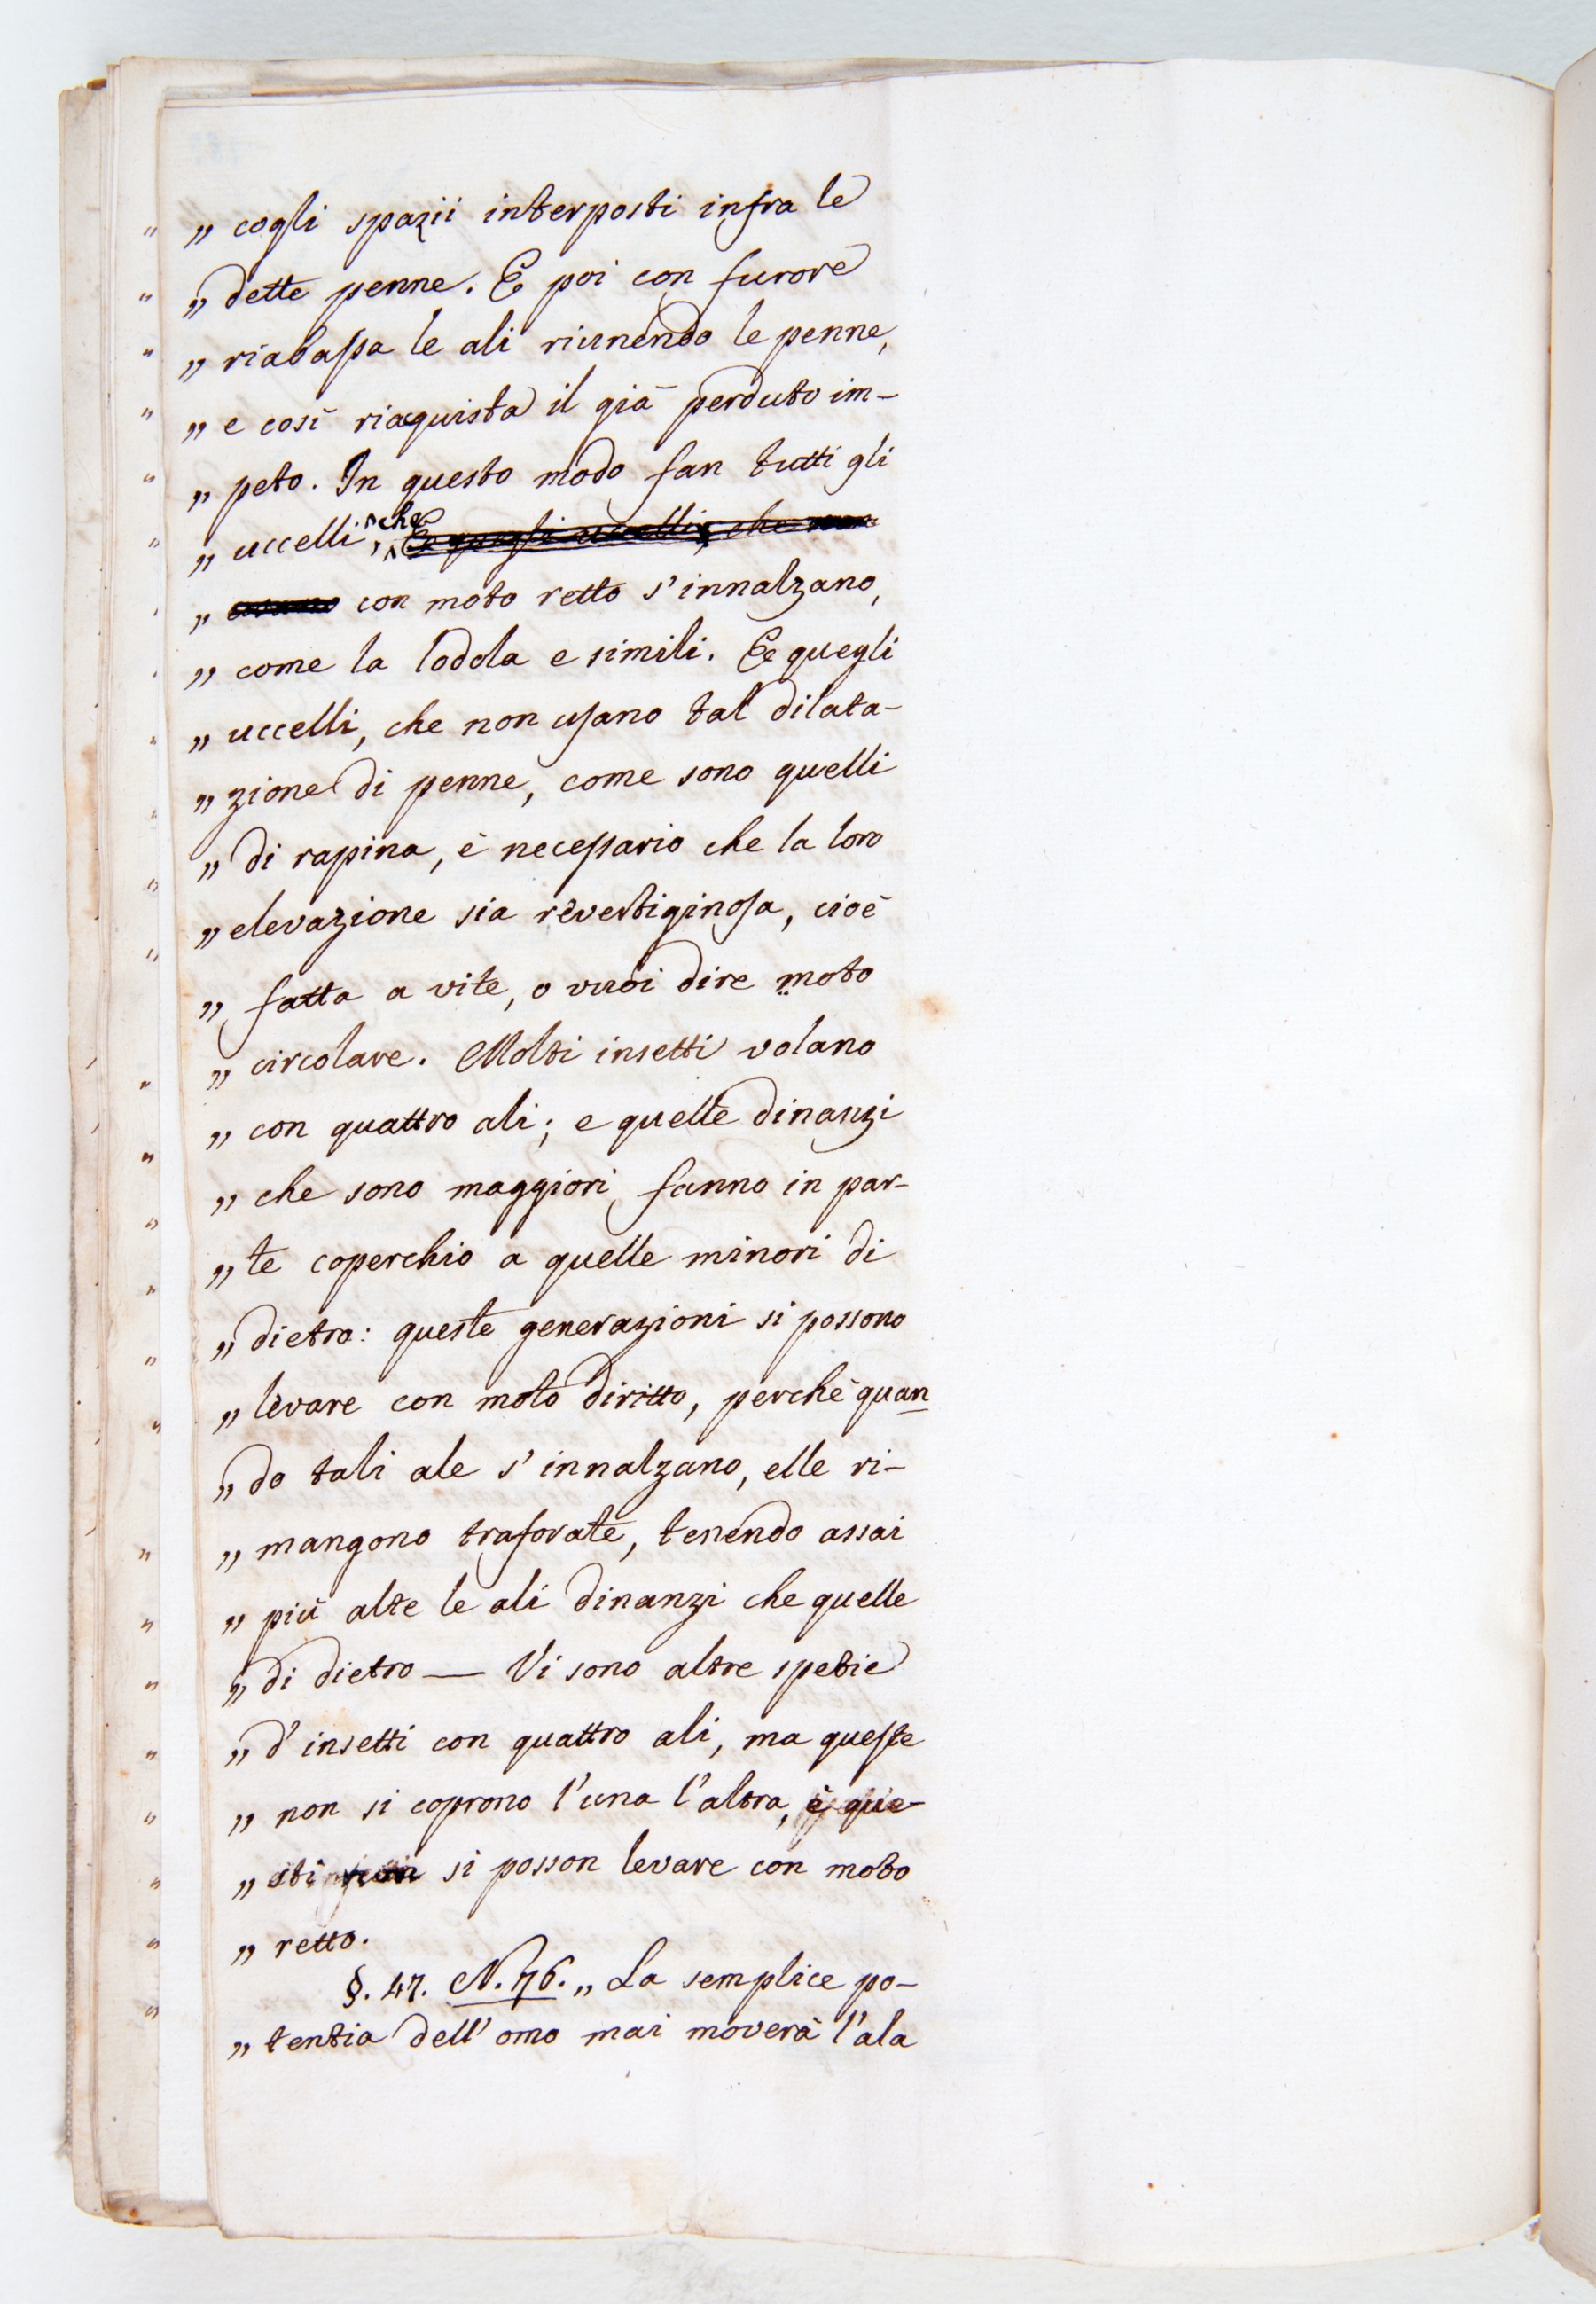 „ cogli spazii interposti infra le
„ dette penne. E poi con furore
„ riabassa le ali riunendo le penne,
„ e così riaquista il già perduto im-
„ peto. In questo modo fan tutti gli
„ uccelli, che E quegli uccelli, che non
„ usano con moto retto s'innalzano,
„ come la lodola e simili. E quegli
„ uccelli, che non usano tal dilata-
„ zione di penne, come sono quelli
„ di rapina, è necessario che la loro
„ elevazione sia revertiginosa, cioè
„ fatta a vite, o vuoi dire moto
„ circolare. Molti insetti volano
„ con quattro ali; e quelle dinanzi
„ che sono maggiori, fanno in par-
„ te coperchio a quelle minori di
„ dietro: queste generazioni si possono
„ levare con moto diritto, perchè quan
„ do tali ale s'innalzano, elle ri-
„ mangono traforate, tenendo assai
„ più alte le ali dinanzi che quelle
„ di dietro — Vi sono altre spetie
„ d'insetti con quattro ali, ma queste
„ non si coprono l'una l'altra, e que-
„ sti non si posson levare con moto
„ retto.
§. 47. N. 76. „ La semplice po-
„ tentia dell'omo mai moverà l'ala